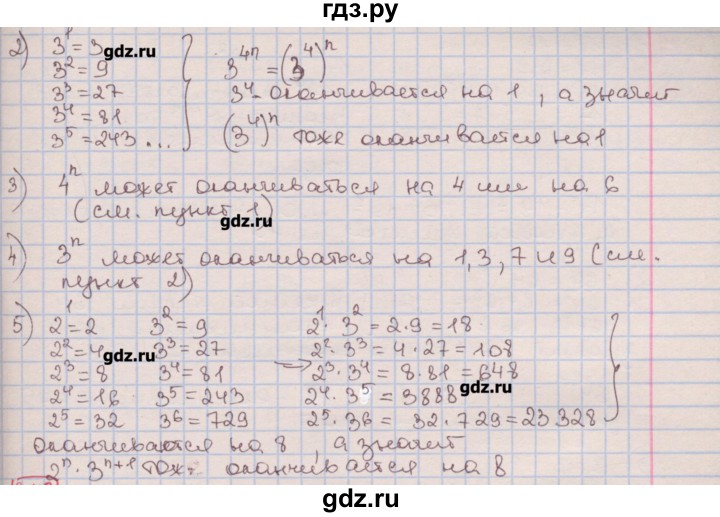 гдз.ру
2) 3¹ = 3
3² = 9
3³ = 27
3⁴ = 81
3⁵ = 243 ...
3⁴ⁿ = (3⁴)ⁿ
3⁴ - оканчивается на 1, а значит
(3⁴)ⁿ тоже оканчивается на 1
gdz.ru
gdz.ru
3) 4ⁿ может оканчиваться на 4 или на 6
(см. пункт 1)
gdz.ru
4) 3ⁿ может оканчиваться на 1, 3, 7 и 9 (см.
пункт 2)
5) 2¹ = 2 3² = 9 2¹ · 3² = 2 · 9 = 18
2² = 4 3³ = 27 2² · 3³ = 4 · 27 = 108
2³ = 8 3⁴ = 81 2³ · 3⁴ = 8 · 81 = 648
2⁴ = 16 3⁵ = 243 2⁴ · 3⁵ = 3888
2⁵ = 32 3⁶ = 729 2⁵ · 36 = 32 · 729 = 23 328
gdz.ru
gdz.ru
оканчивается на 8, а значит
2ⁿ · 3ⁿ⁺¹ тоже оканчивается на 8
gdz.ru